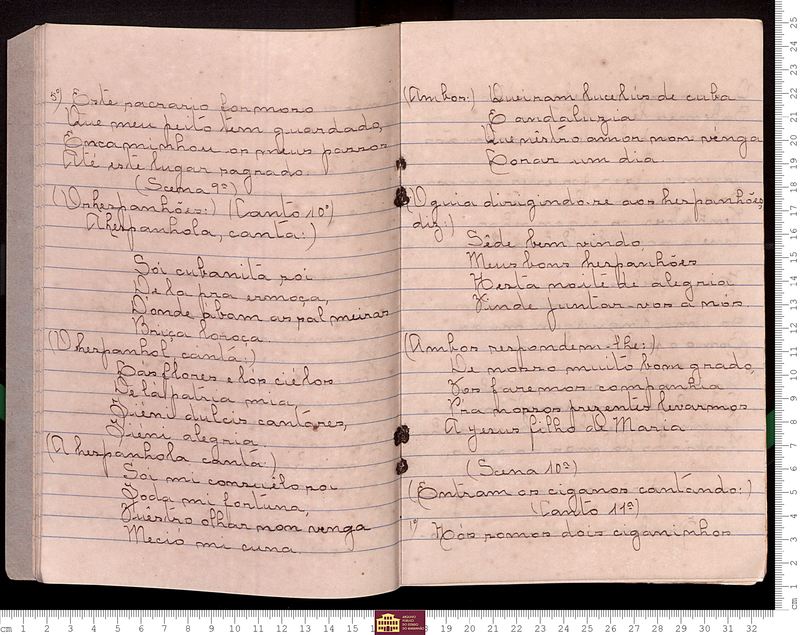 5º) Este sacrario formoso
Que meu peito tem guardado,
Encaminhou os meus passos
Até este lugar sagrado.
(Scena 9ª)
(Os hespanhões:) (Canto 10º)
A hespanhola, canta:)
Soi cubanita soi
De la pra ermoça,
D'onde abam as palmeiras
Briça loroça.
(O hespanhol, canta:)
Las flores e lós ciélos
De la patria mia
Tiéni dulcis cantáres,
Tiéni alegria
(A hespanhola canta:)
Soi mi consuêlo soi
Toda mi fortuna,
Vuêstro olhar non venga
Mecio mi cuna
(Ambos:) Queiram lucelús de cuba
E andaluzia
Que nistro amor non venga
Eonar um dia
(O guia dirigindo-se aos hespanhões,
diz:)
Sêde bem vindo,
Meus bons hespanhões
Nesta noite de alegria
Vinde juntar-vos a nós.
(Ambos respondem-lhe:)
De nosso muito bom grado,
Vos faremos companhia
P'ra nossos prezentes levarmos
A Jesus filho de Maria
(Scena 10ª)
(Entram os ciganos cantando:)
(Canto 11º)
1º) Nós somos dois ciganinhos
ARQUIVO
PÚBLICO
DO ESTADO
DO MARANHÃO